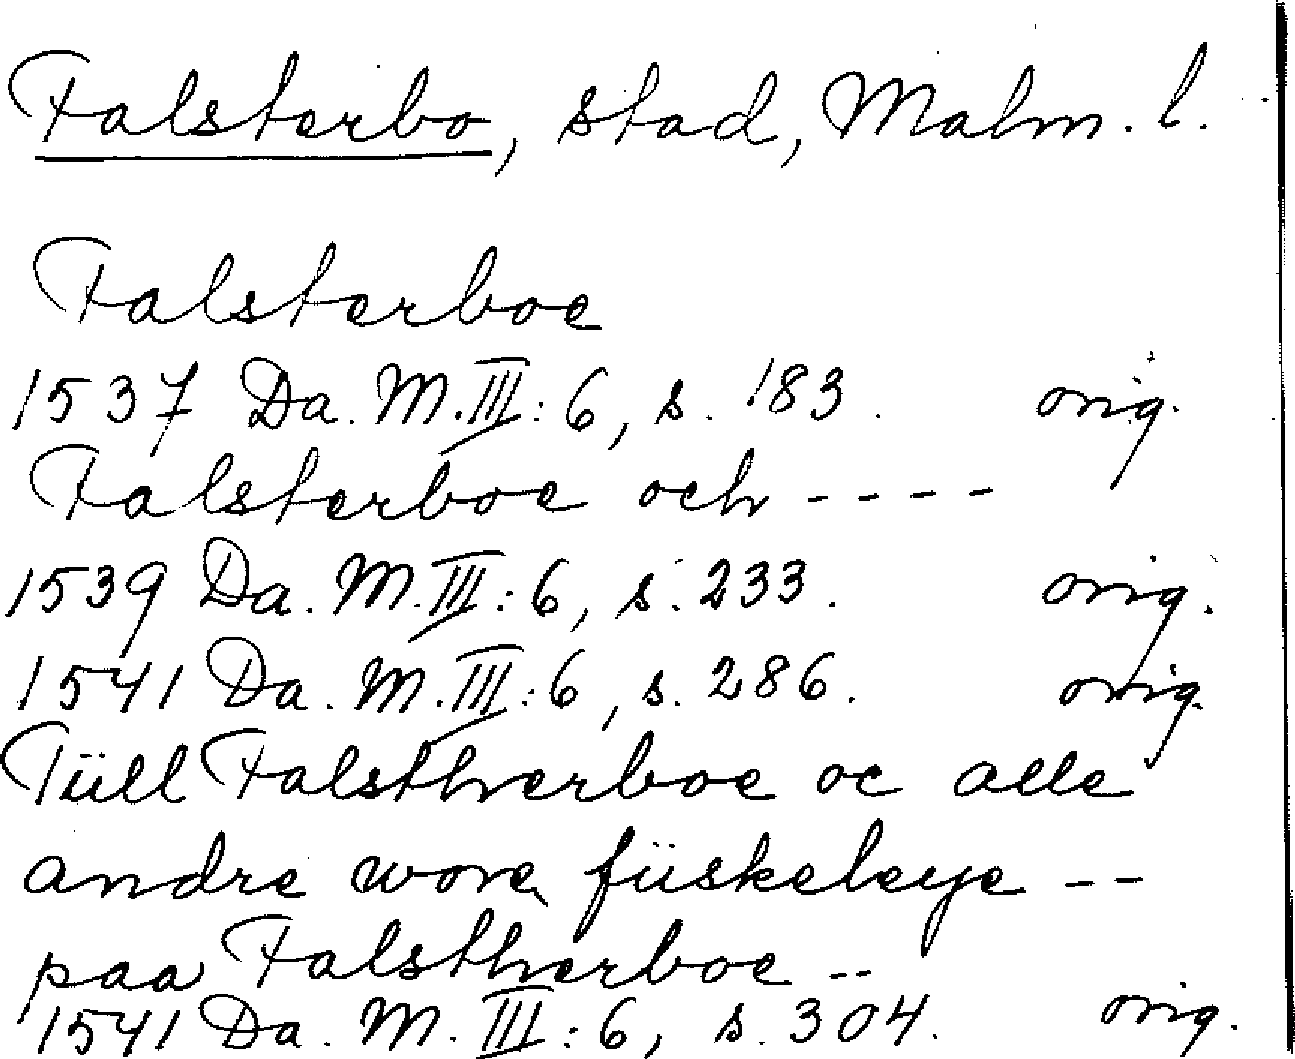 Falsterbo, stad, Malm. l.
Falsterboe
1537 Da. M. III: 6, s. 183. orig.
Falsterboe och - - - -
1539 Da. M. III: 6, s. 233. orig.
1541 Da. M. III: 6, s. 286. orig.
Tüll Falstherboe oc alle
andre wore füskeleye - -
paa Falstherboe - -
1541 Da. M. III: 6, s. 304. orig.